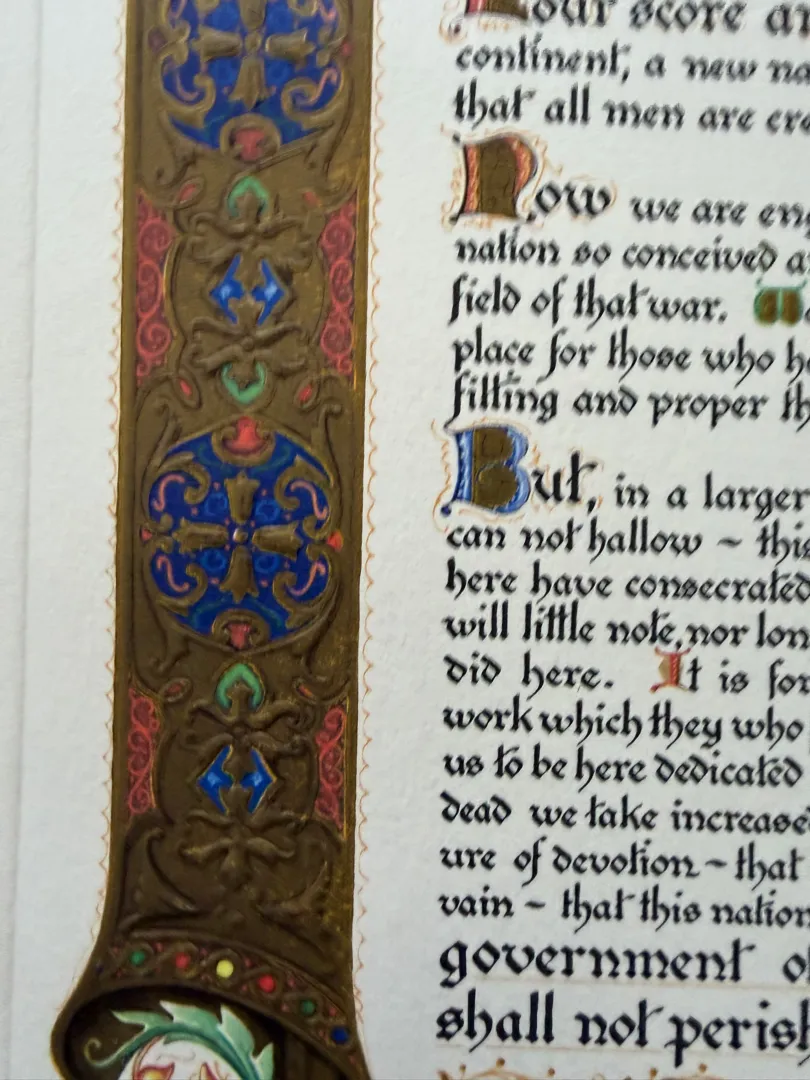 Four score an
continent, a new na
that all men are cre
Now we are eng
nation so conceived a
field of that war.
place for those who ha
fitting and proper th
But, in a larger
can not hallow ~ this
here have consecrated
will little note, nor lon
did here. It is for
work which they who
us to be here dedicated
dead we take increased
ure of devotion ~ that
vain ~ that this nation
government of
shall not perish